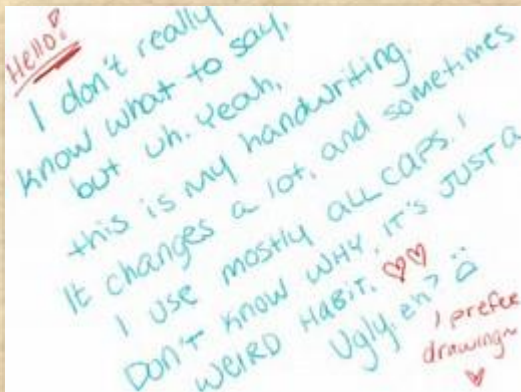 Hello!
I don't really
know what to say,
but uh. Yeah,
this is my handwriting.
It changes a lot, and sometimes
I use mostly ALL CAPS. I
DON'T KNOW WHY. IT'S JUST A
WEIRD HABIT. ♡♡
Ugly, eh?
I prefer
drawing~
♡